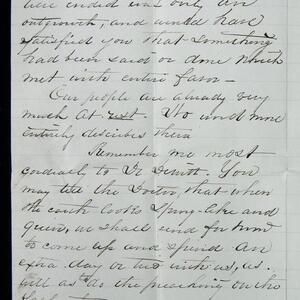 were ended was only an
outgrowth, and would have
satisfied you that something
had been said or done which
met with entire favor -
Our people are already very
much at rest. No word more
entirely describes them
Remember me most
cordially to Dr Dewitt. You
may tell the Doctor, that when
the earth looks Spring-like and
green, we shall send for him
to come up and spend an
extra day or two with us, as
well as do the preaching on the